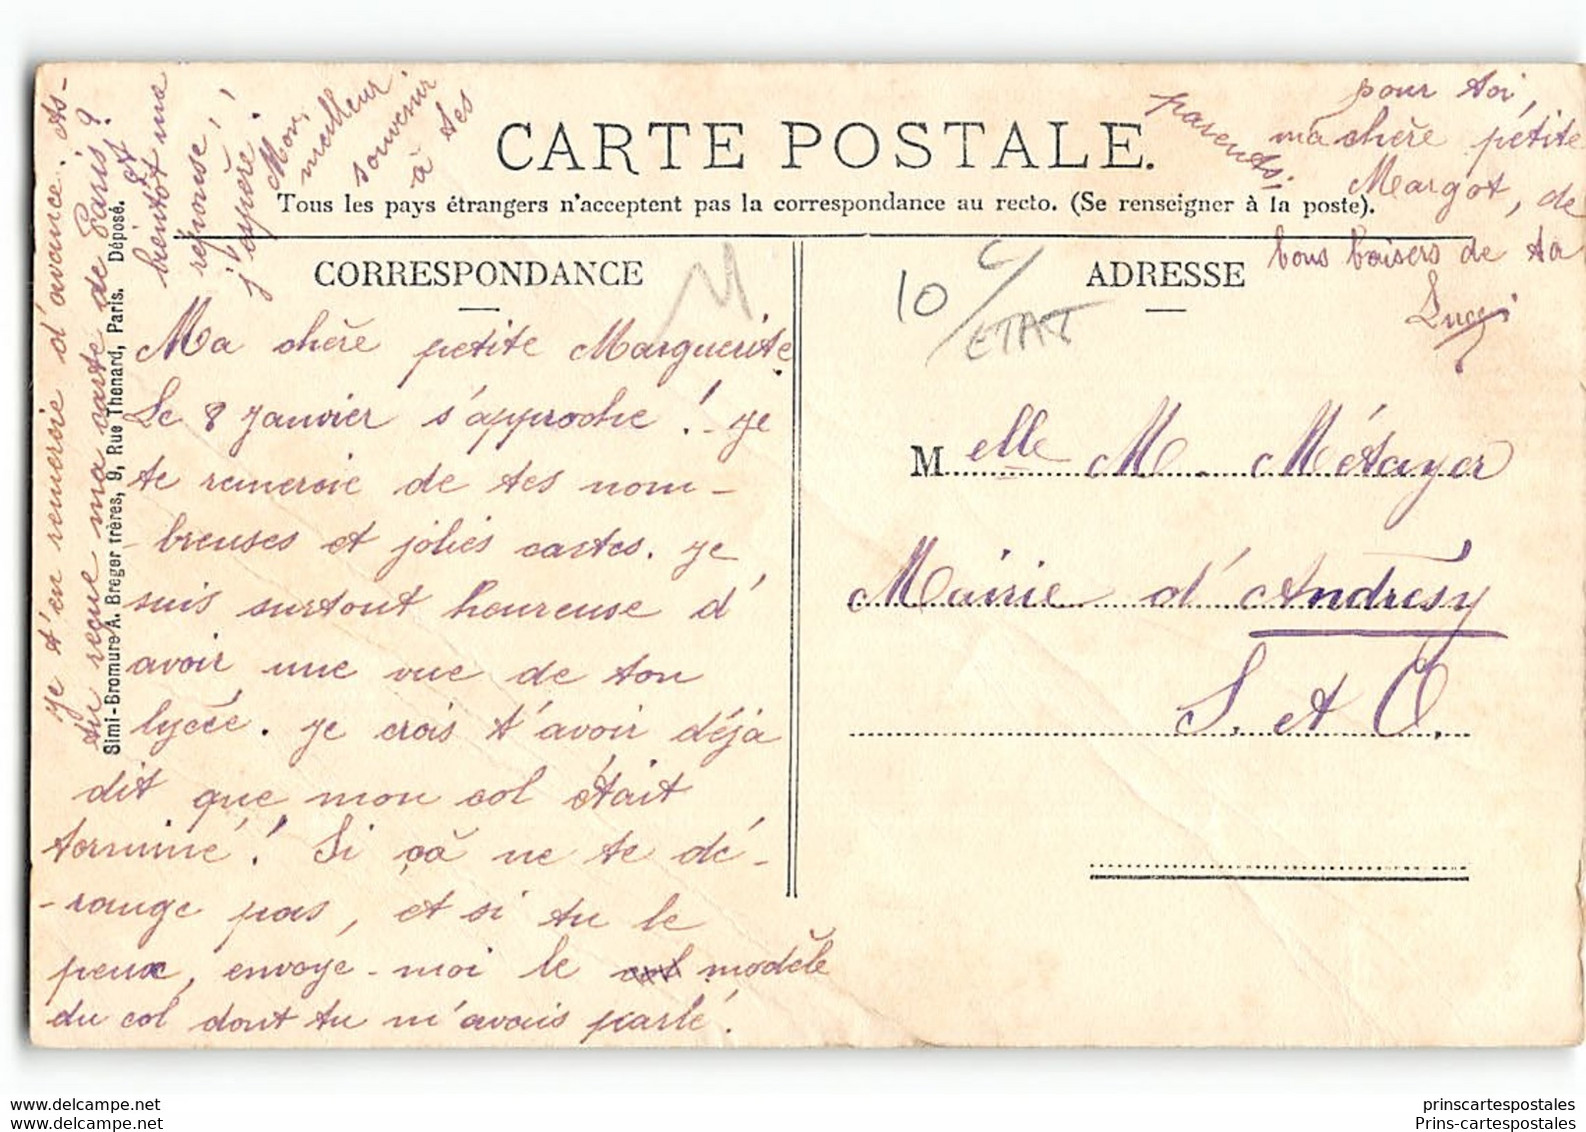 CARTE POSTALE.
Tous les pays étrangers n'acceptent pas la correspondance au recto. (Se renseigner à la poste).
CORRESPONDANCE
Ma chère petite Marguerite
Le 8 Janvier s'approche ! Je
te remercie de tes nom-
-breuses et jolies cartes. Je
suis surtout heureuse d'
avoir une vue de ton
lycée. Je crois t'avoir déjà
dit que mon col était
terminé ! Si ça ne te dé-
-range pas, et si tu le
peux, envoye-moi le col modèle
du col dont tu m'avais parlé.
Je t'en remercie d'avance. As-
tu reçue ma carte de Paris ?
A
bientôt une
réponse,
j'espère !
Mon
meilleur
souvenir
à tes
parents,
pour toi,
ma chère petite
Margot, de
bons baisers de ta
Lucy
Simi-Bromure A. Breger frères, 9, Rue Thenard, Paris. Déposé.
M
10
ETAT
ADRESSE
Melle M. Métayer
Mairie d'Andrésy
S. et O.
prinscartespostales
Prins-cartespostales.com
prinscartespostales
Prins-cartespostales.com